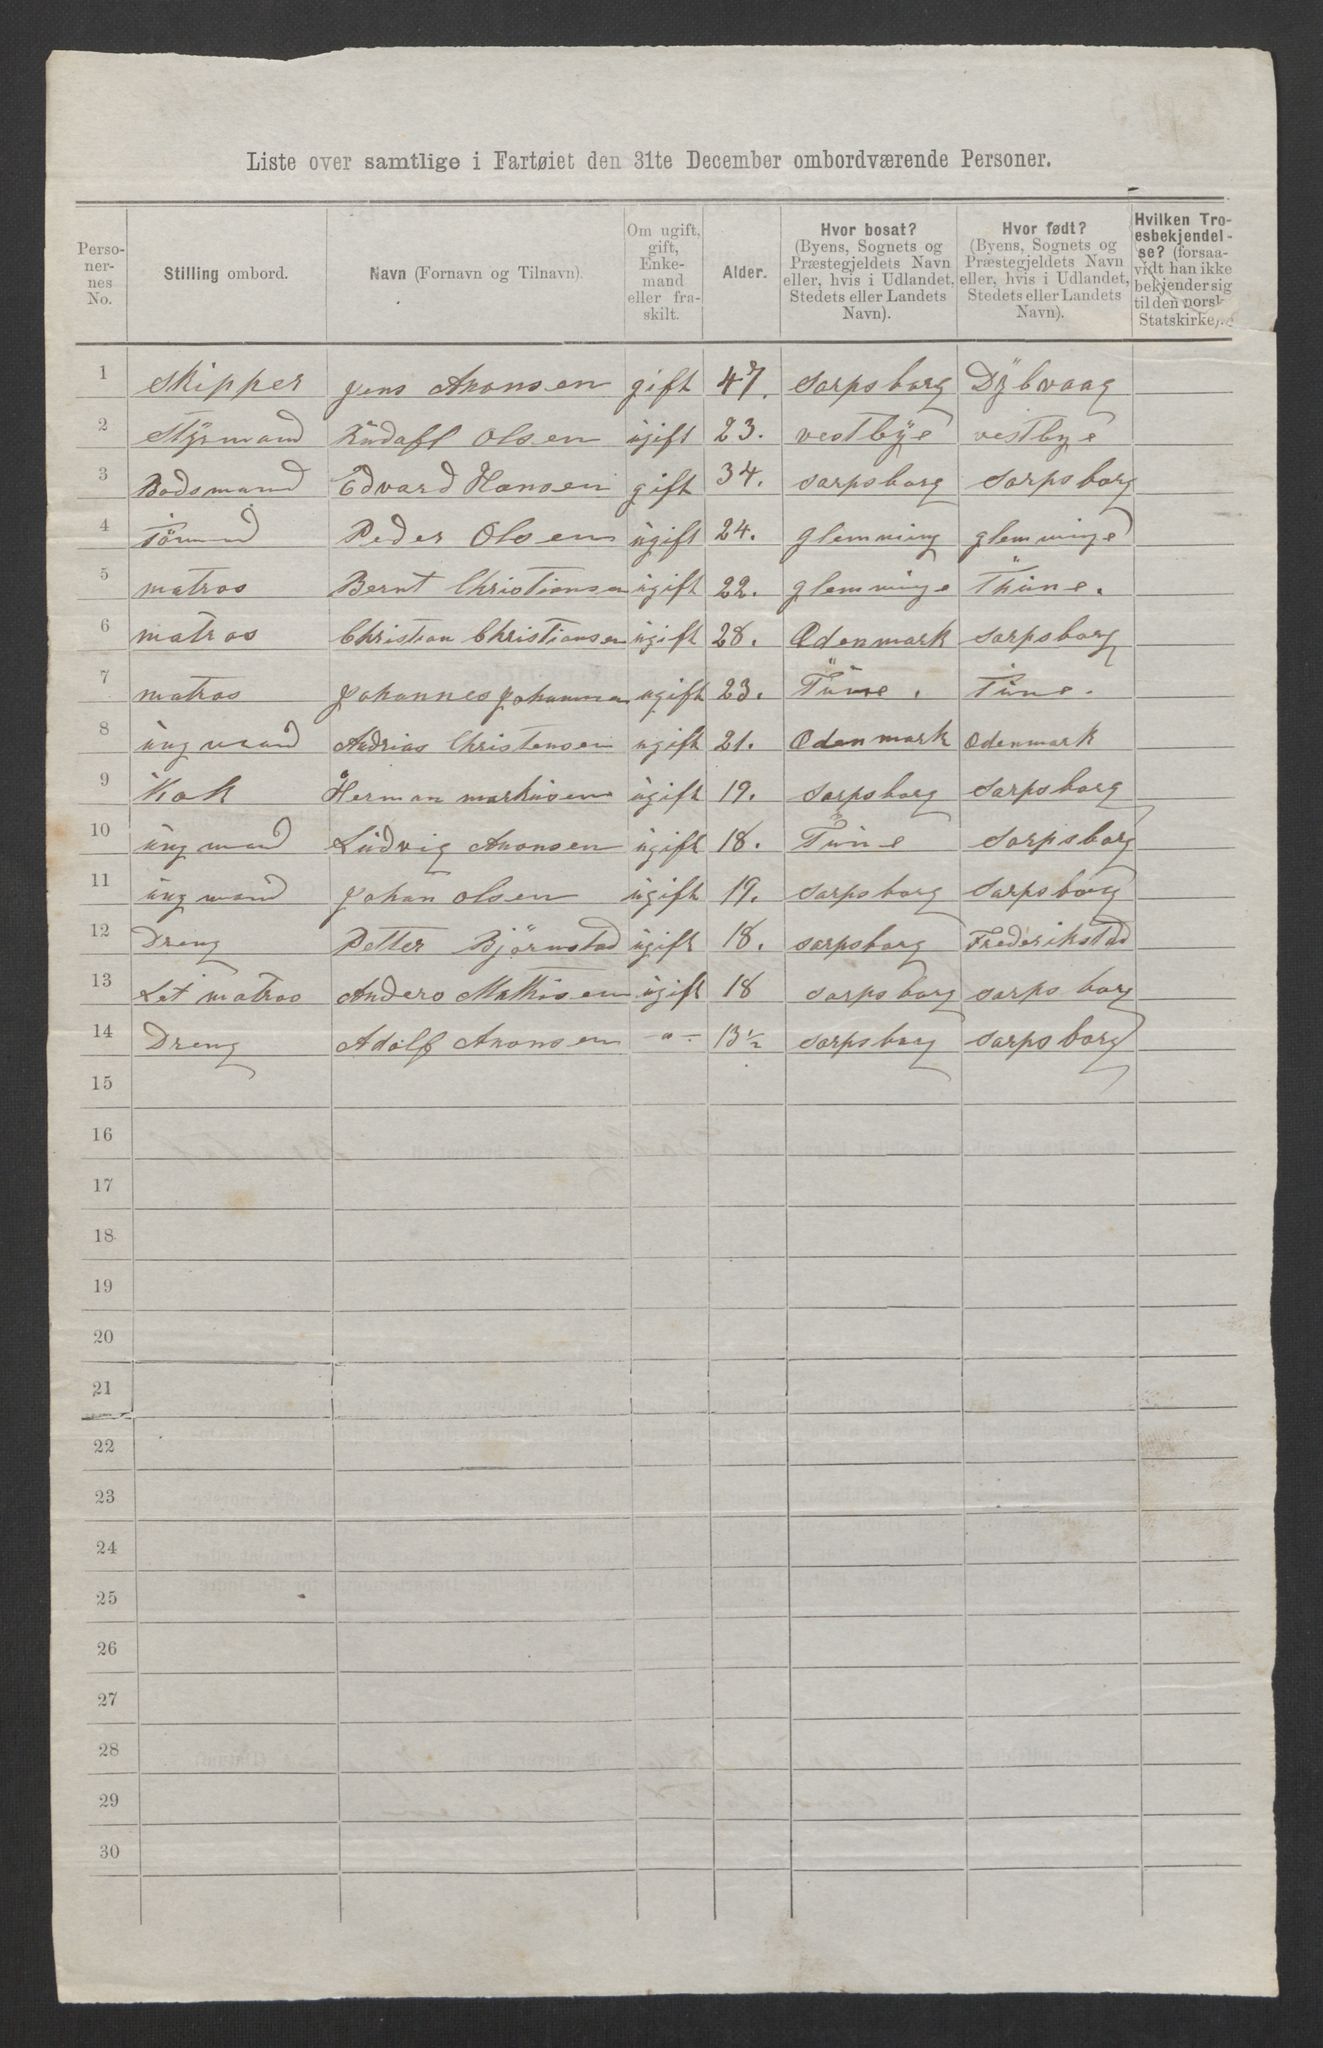 Liste over samtlige i Fartøiet den 31te December ombordværende Personer.
Perso-
ner-
nes
No.
Stilling ombord.
Navn (Fornavn og Tilnavn).
Om ugift,
gift,
Enke-
mand
eller fra-
skilt.
Alder.
Hvor bosat?
(Byens, Sognets og
Præstegjeldets Navn
eller, hvis i Udlandet,
Stedets eller Landets
Navn).
Hvor født?
(Byens, Sognets og
Præstegjeldets Navn
eller, hvis i Udlandet,
Stedets eller Landets
Navn).
Hvilken Tro-
esbekjendel-
se? (forsaa-
vidt han ikke
bekjender sig
til den norsk
Statskirke).
1 Skipper Jens Aronsen gift 47. Sarpsborg Dÿbvaag
2 Stÿrmand Olsen ugift 23. vestbÿe vestbye
3 Bodsmand Edvard Hansen gift 34. Sarpsborg Sarpsborg
4 Peder Olsen ugift 24. glemming glemminge
5 matros Bernt Christiansen ugift 22. glemminge Thüne.
6 matros Christian Christiansen ugift 28. Ødenmark Sarpsborg
7 matros Johannes Johannsen ugift 23. Tüne. Tune.
8 ung mand Andrias Christensen ugift 21. Ødenmark Ødenmark
9 Kok Herman markusen ugift 19. Sarpsborg Sarpsborg
10 ung mand Ludvig Aronsen ugift 18. Tune Sarpsborg
11 ung mand Johan Olsen ugift 19. Sarpsborg Sarpsborg
12 Dreng Petter Bjørnstad ugift 18. Sarpsborg Frederikstad
13 Let matros Anders Mathisen ugift 18 Sarpsborg Sarpsborg
14 Dreng Adolf Aronsen -"- 13½ Sarpsborg Sarpsborg
15
16
17
18
19
20
21
22
23
24
25
26
27
28
29
30